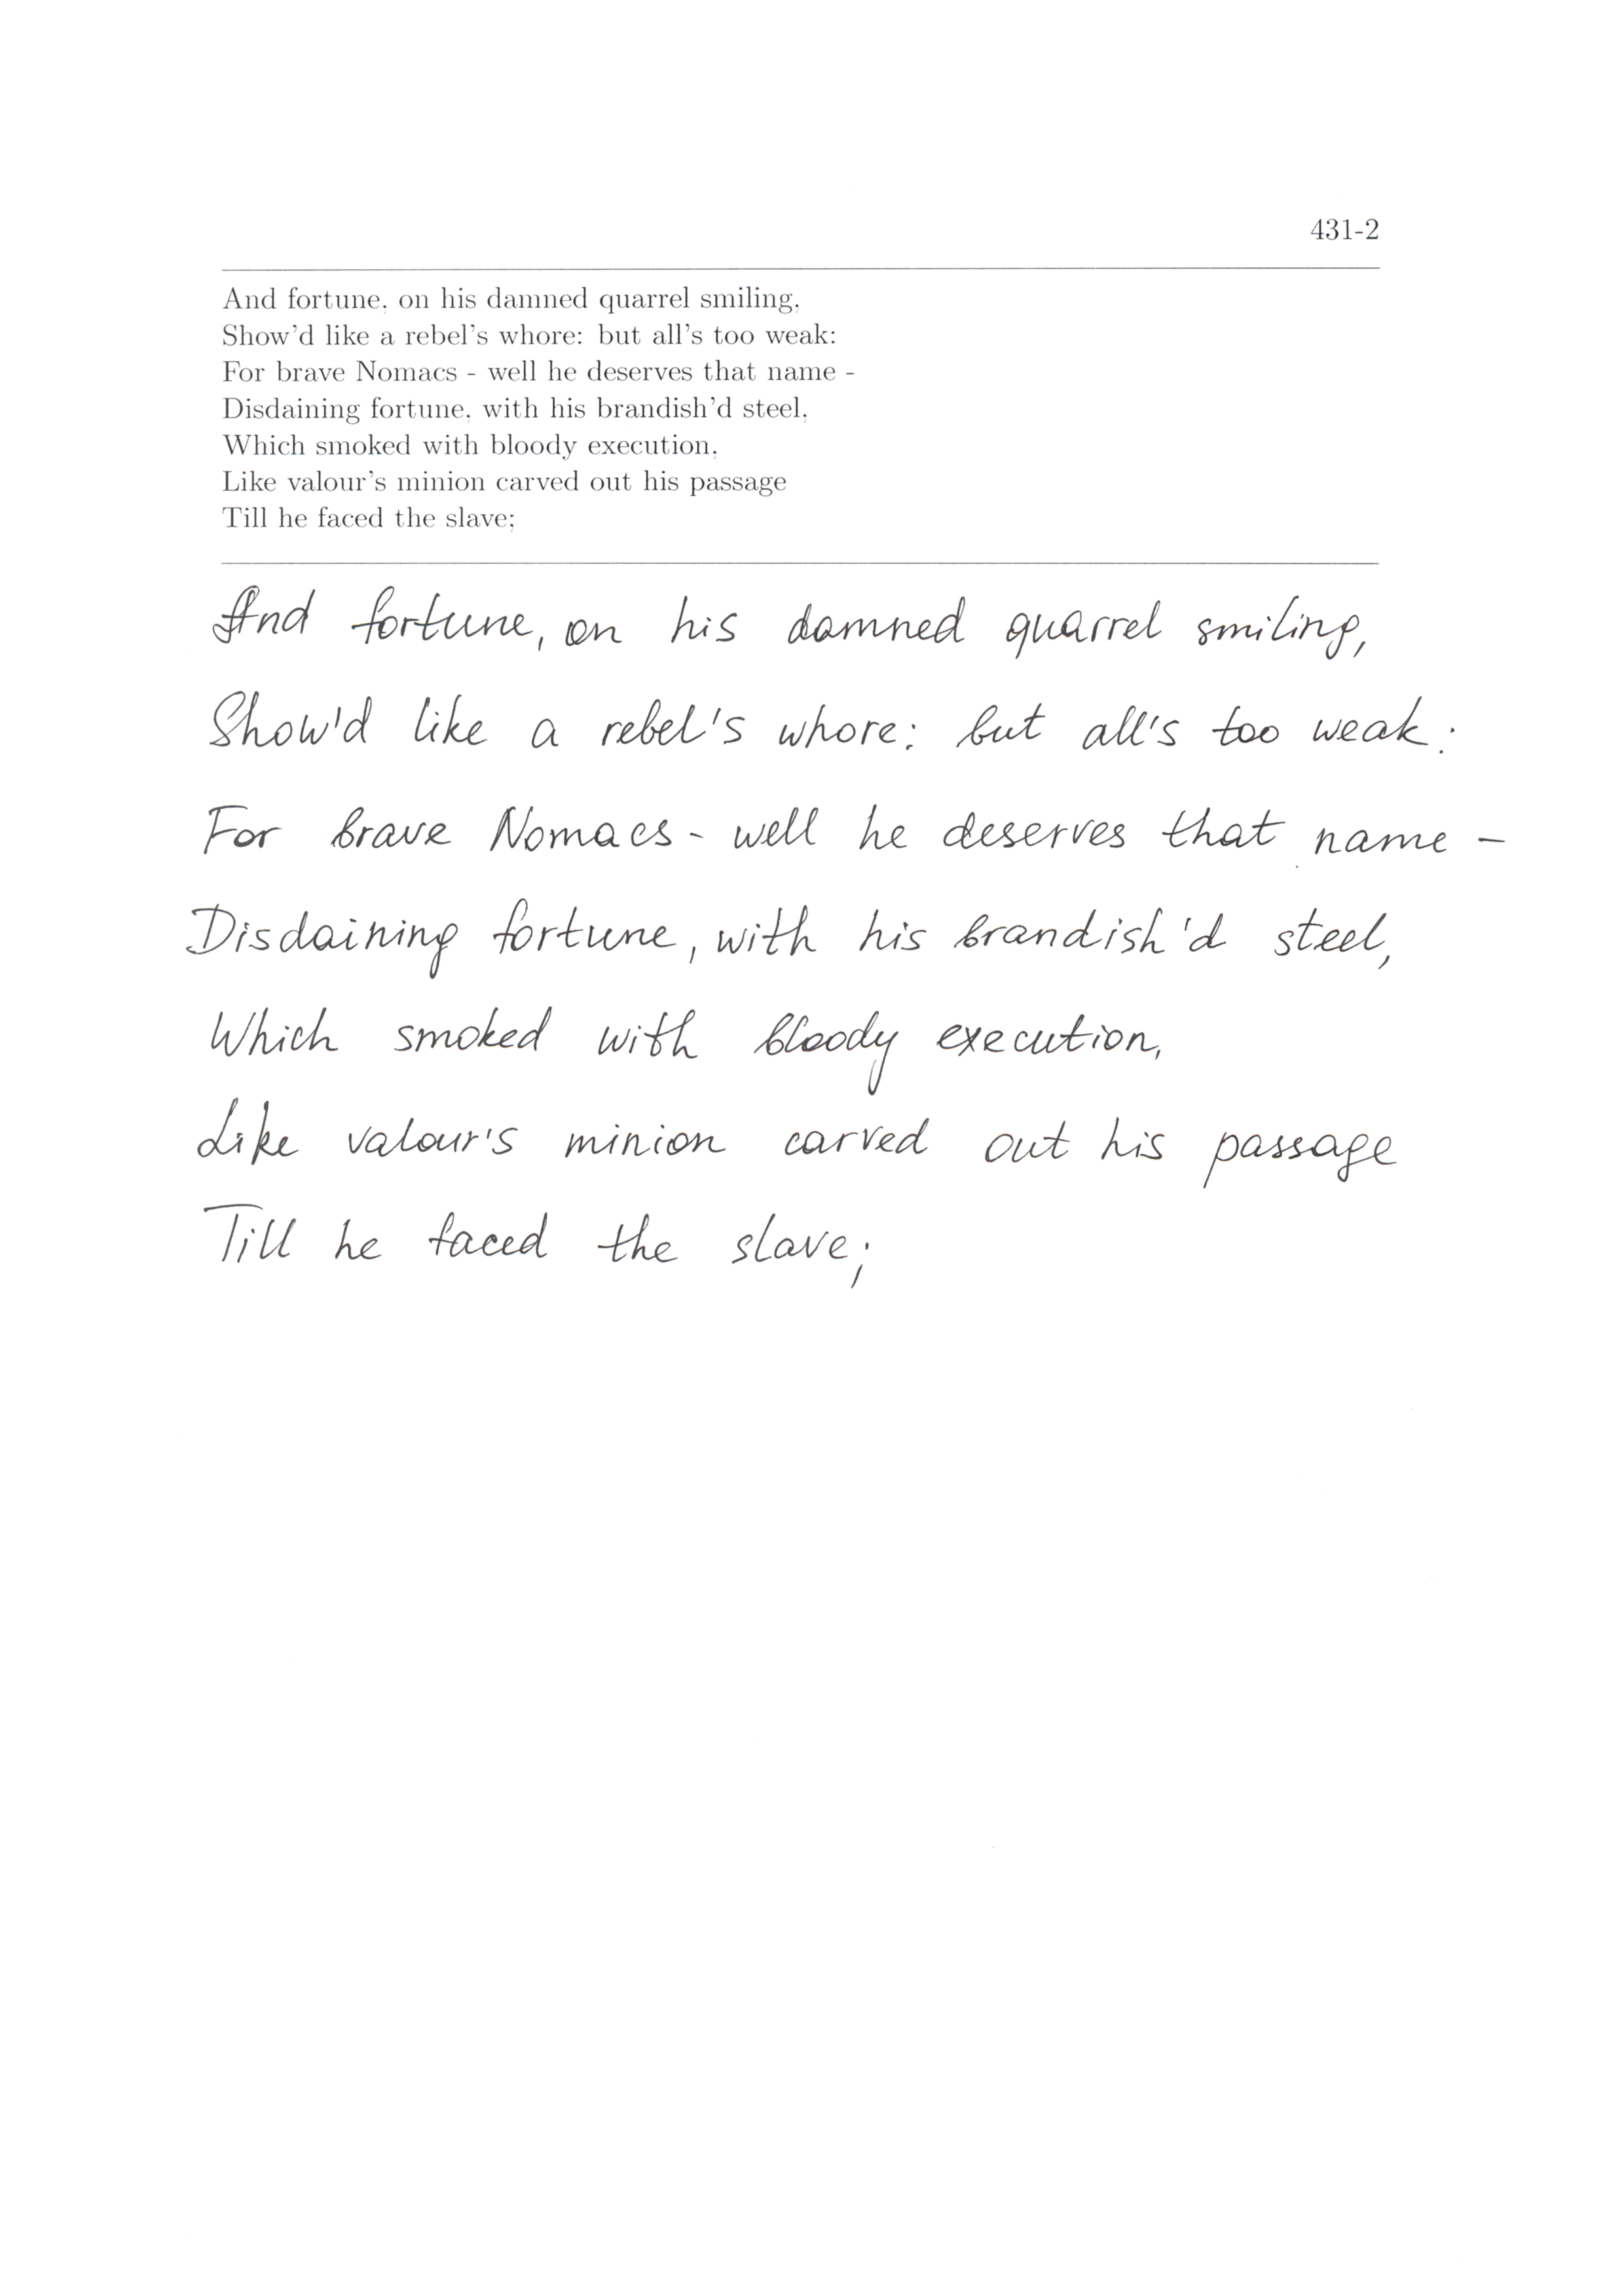 431-2
And fortune, on his damned quarrel smiling,
Show'd like a rebel's whore: but all's too weak:
For brave Nomacs - well he deserves that name -
Disdaining fortune, with his brandish'd steel,
Which smoked with bloody execution,
Like valour's minion carved out his passage
Till he faced the slave;
And fortune, on his damned quarrel smiling,
Show'd like a rebel's whore: but all's too weak:
For brave Nomacs - well he deserves that name -
Disdaining fortune, with his brandish'd steel,
Which smoked with bloody execution,
Like valour's minion carved out his passage
Till he faced the slave;